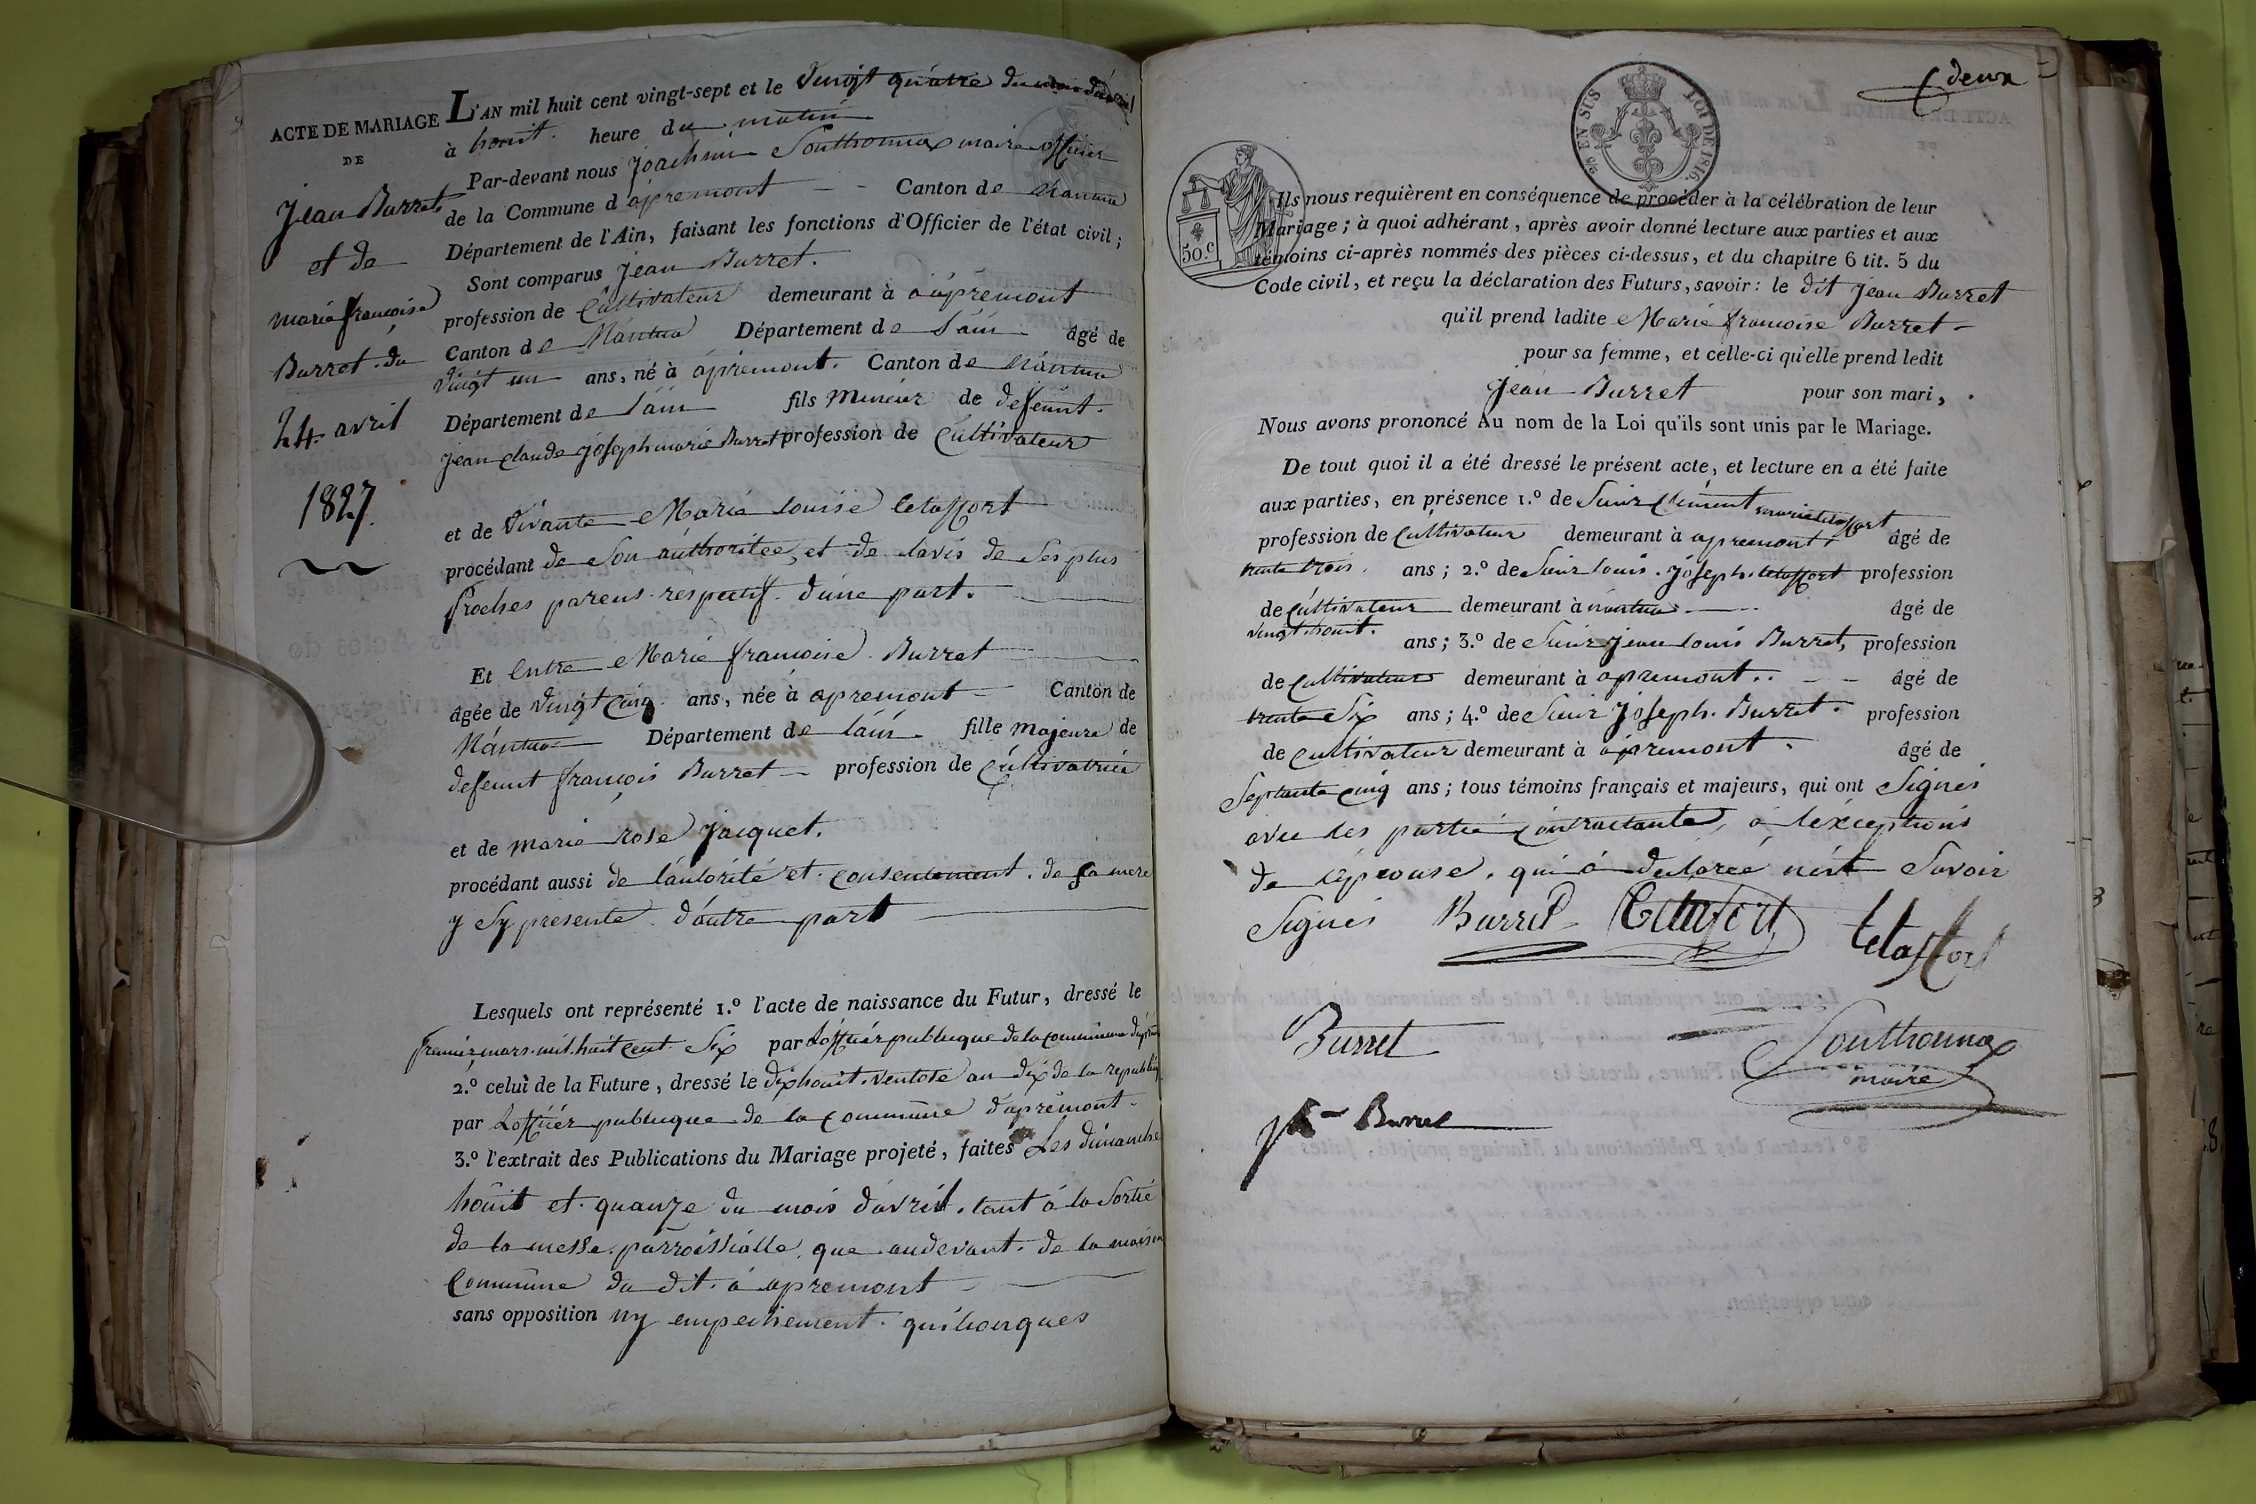 ACTE DE MARIAGE
DE
Jean Burret
et de
marie françoise
Burret. du
24. avril
1827.
L'AN mil huit cent vingt-sept et le vingt quatre du mois d'avril
à houit. heure du matin
Par-devant nous Joachim Southonnax maire officier
de la Commune d'apremont Canton de Nantua
Département de l'Ain, faisant les fonctions d'Officier de l'état civil;
Sont comparus Jean Burret.
profession de Cultivateur demeurant à apremont
Canton de Nantua Département de l'ain âgé de
vingt un ans, né à apremont. Canton de Nantua
Département de l'ain fils mineur de defeunt.
Jean claude Joseph marie Burret profession de Cultivateur
et de vivante Marie louise letaffort
procédant de Son authoritee, et de lavis de Ses plus
proches parens respectif. d'une part.
Et Entre Marie françoise Burret
âgée de vingt cinq ans, née à apremont Canton de
Nantua Département de l'ain fille majeure de
defeunt françois Burret profession de Cultivatrice
et de marie rose Jacquet.
procédant aussi de l'autorité et consentement. de Sa mere
y Sy presente d'autre part
Lesquels ont représenté 1.º l'acte de naissance du Futur, dressé le
premier mars. mil huit cent Six par Lofficier publuque de la commune
2.º celui de la Future, dressé le dixhouit. ventose an dix de la republiq
par Lofficier publuque de la commune d'apremont
3.º l'extrait des Publications du Mariage projeté, faites Les dimanche
houit et quanze du mois d'avril. tant à la Sortie
de la messe parroissialle, que audevant. de la maison
Commune du dit. à apremont
sans opposition ny empechement. quilconques
deux
C/E EN SUS
LOI DE 1816.
50.c
Ils nous requièrent en conséquence de procéder à la célébration de leur
Mariage; à quoi adhérant, après avoir donné lecture aux parties et aux
témoins ci-après nommés des pièces ci-dessus, et du chapitre 6 tit. 5 du
Code civil, et reçu la déclaration des Futurs, savoir: le dit Jean Burret
qu'il prend ladite Marie françoise Burret
pour sa femme, et celle-ci qu'elle prend ledit
Jean Burret pour son mari,
Nous avons prononcé Au nom de la Loi qu'ils sont unis par le Mariage.
De tout quoi il a été dressé le présent acte, et lecture en a été faite
aux parties, en présence 1.º de Sieur Clément marie letaffort
profession de Cultivateur demeurant à apremont âgé de
trente trois. ans; 2.º de Sieur louis. Joseph letaffort profession
de Cultivateur demeurant à nantua âgé de
vingt. houit. ans; 3.º de Sieur Jean louis Burret, profession
de Cultivateur demeurant à apremont. âgé de
trente Six ans; 4.º de Sieur Joseph. Burret. profession
de cultivateur demeurant à apremont. âgé de
Septante cinq ans; tous témoins français et majeurs, qui ont Signés
avec les partie contractante, à l'éxceptions
de l'épeouse. qui à declarée n'ent Savoir
Signés Burret Letaffort letaffort
Burret Southonnax
maire
Burret